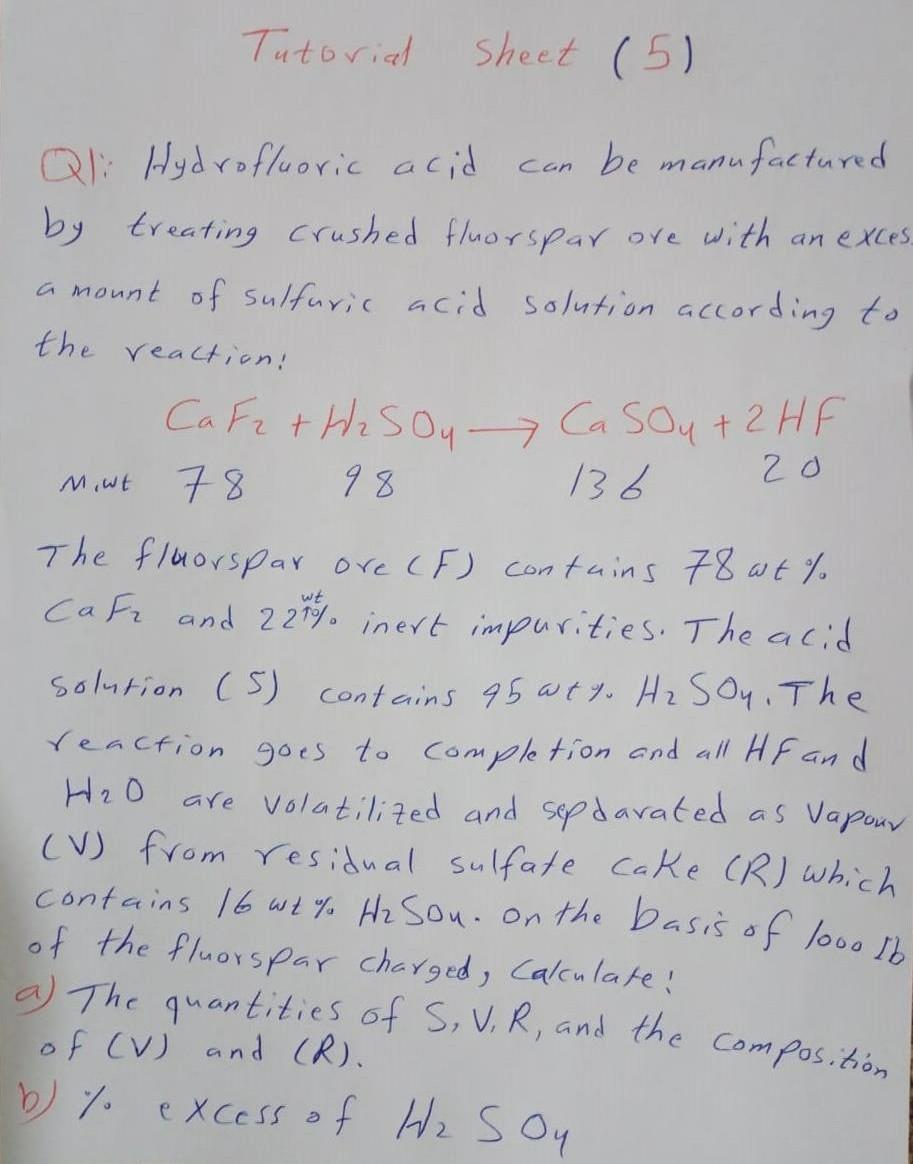 Tutorial Sheet (5)
Q1: Hydrofluoric acid can be manufactured
by treating crushed fluorspar ore with an exces
amount of sulfuric acid solution according to
the reaction:
CaF2 + H2SO4 → CaSO4 + 2HF
M.wt 78 98 136 20
The fluorspar ore (F) contains 78 wt %
CaF2 and 22 wt% inert impurities. The acid
solution (S) contains 95 wt %. H2SO4. The
reaction goes to completion and all HF and
H2O are volatilized and sepdarated as Vapour
(V) from residual sulfate cake (R) which
contains 16 wt % H2SO4. on the basis of 1000 Ib
of the fluorspar charged, Calculate:
a) The quantities of S, V, R, and the composition
of (V) and (R).
b) % excess of H2SO4